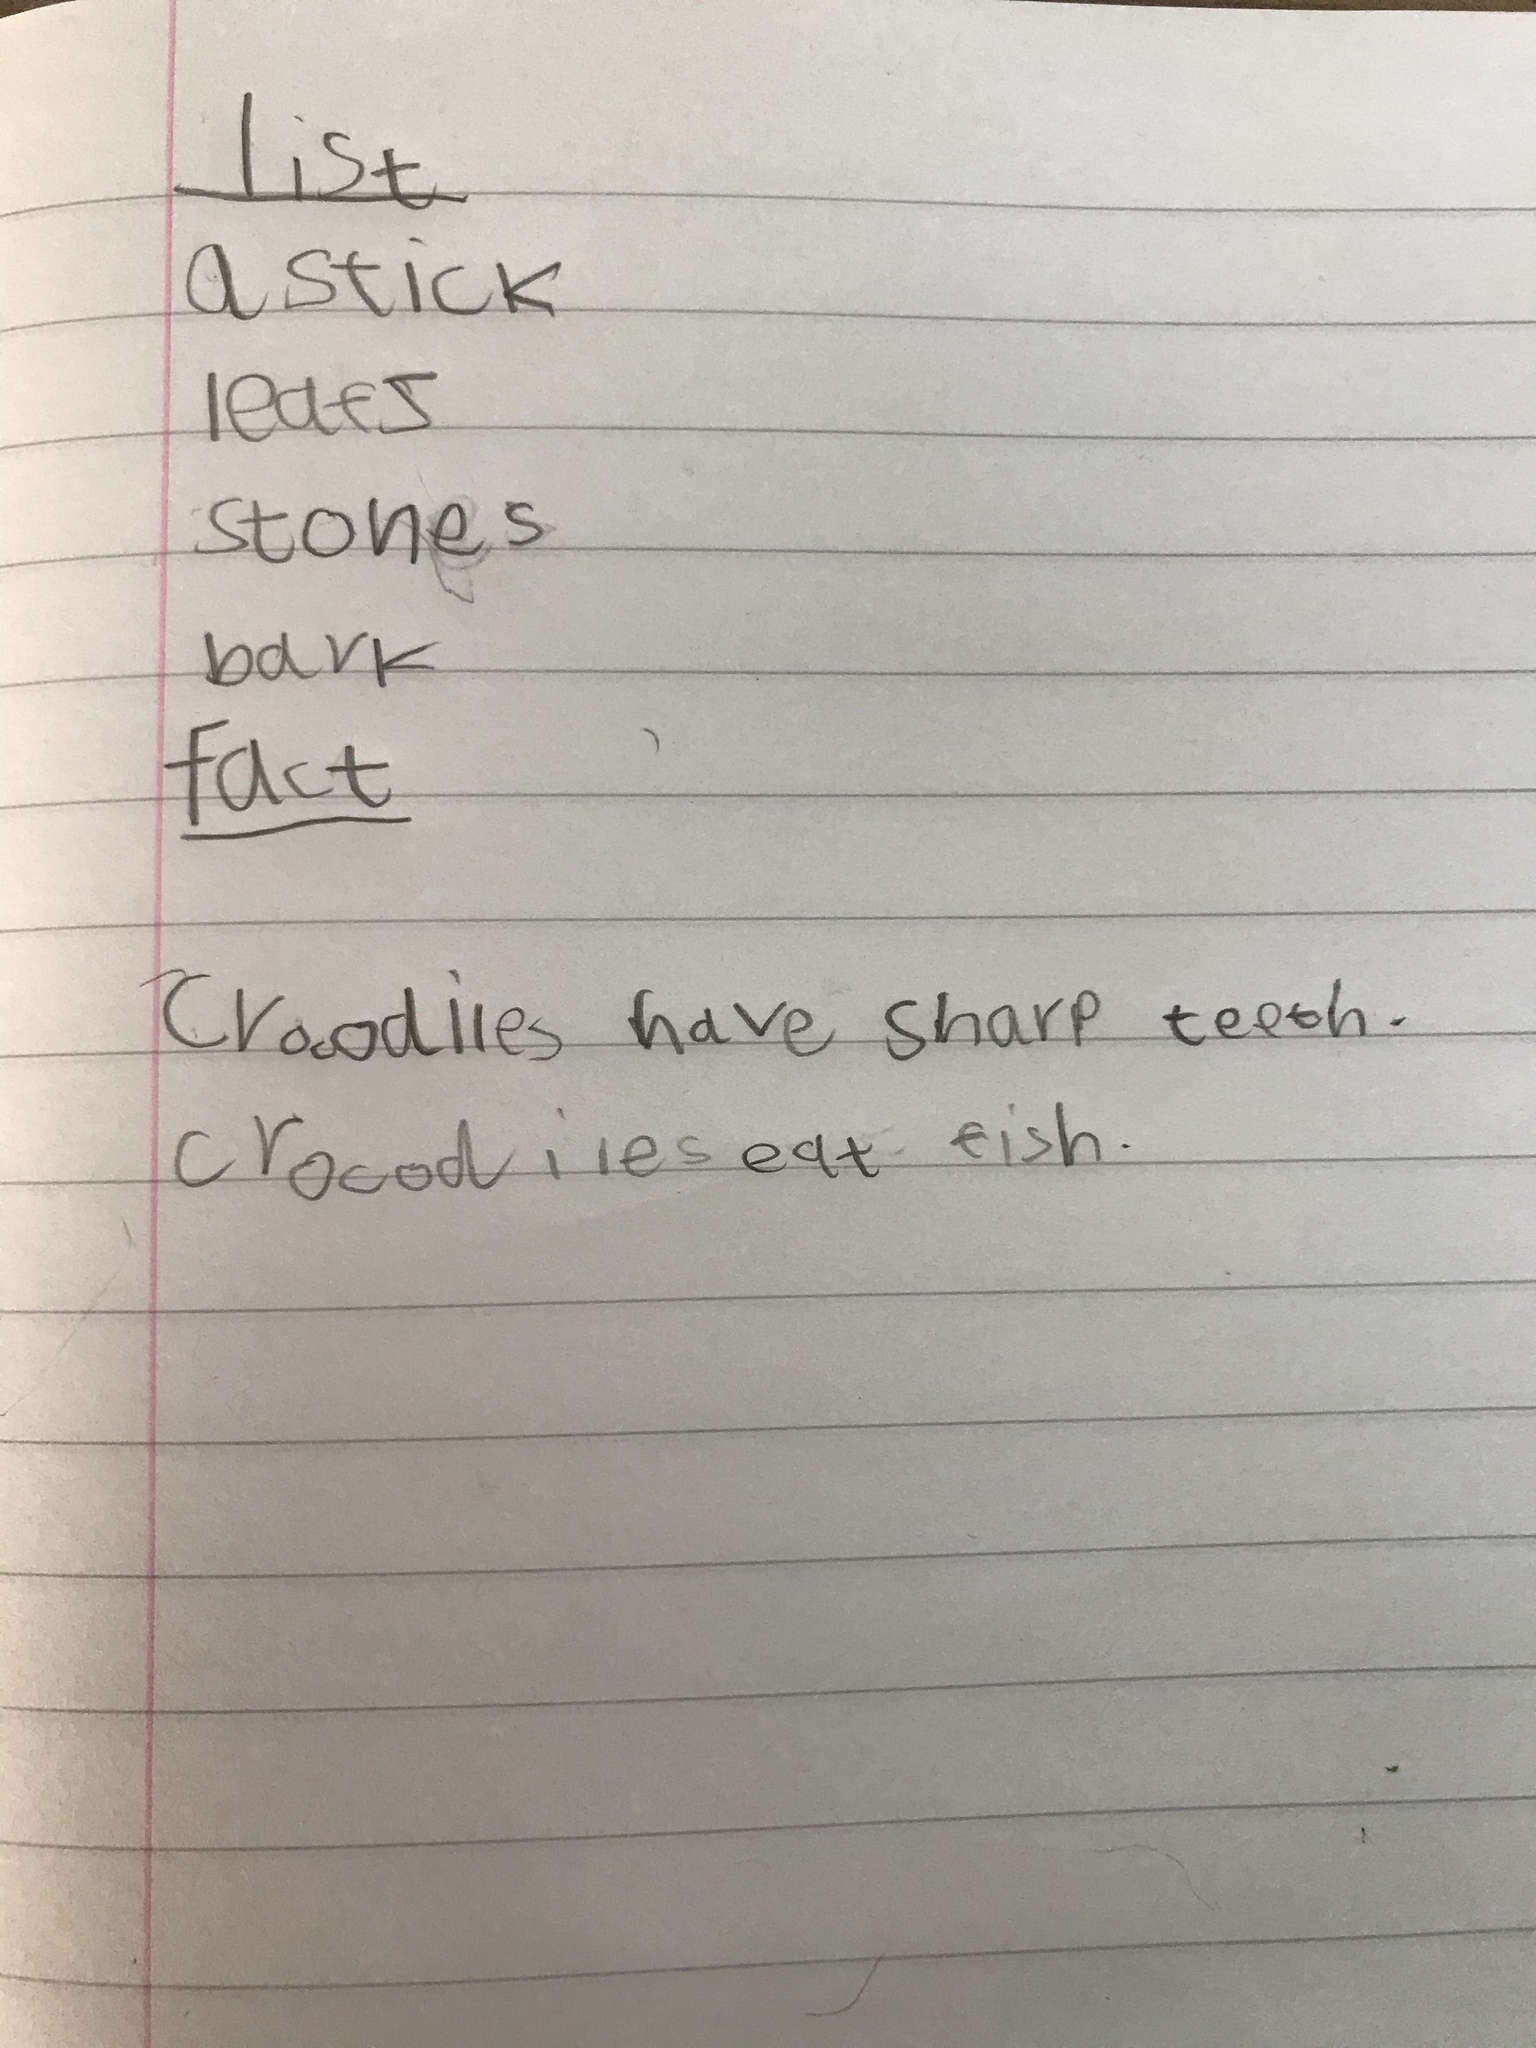 list
a stick
leafs
stones
bark
fact
Crocodiles have sharp teeth.
crocodiles eat fish.